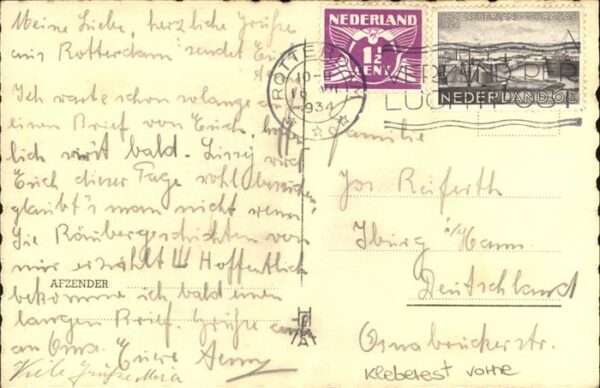 Meine Lieben, herzliche Grüße
aus Rotterdam sendet Euch
Ich warte schon solange auf
einen Brief von Euch,
bald. Sissy wird
Euch dieser Tage wohl besuchen,
glaubt's man nicht wenn
Sie Räubergeschichten von
mir erzählt !!! Hoffentlich
bekomme ich bald einen
langen Brief. Grüße auch
an Oma. Eure
Viele Grüße Maria
AFZENDER
NEDERLAND
1½
CENT
ROTTERDAM
1934
NEDERLAND 6 ct
Familie
Jos Reiferth
Iburg b/Hann.
Deutschland
Osnabrückerstr.
Kleberest vorne